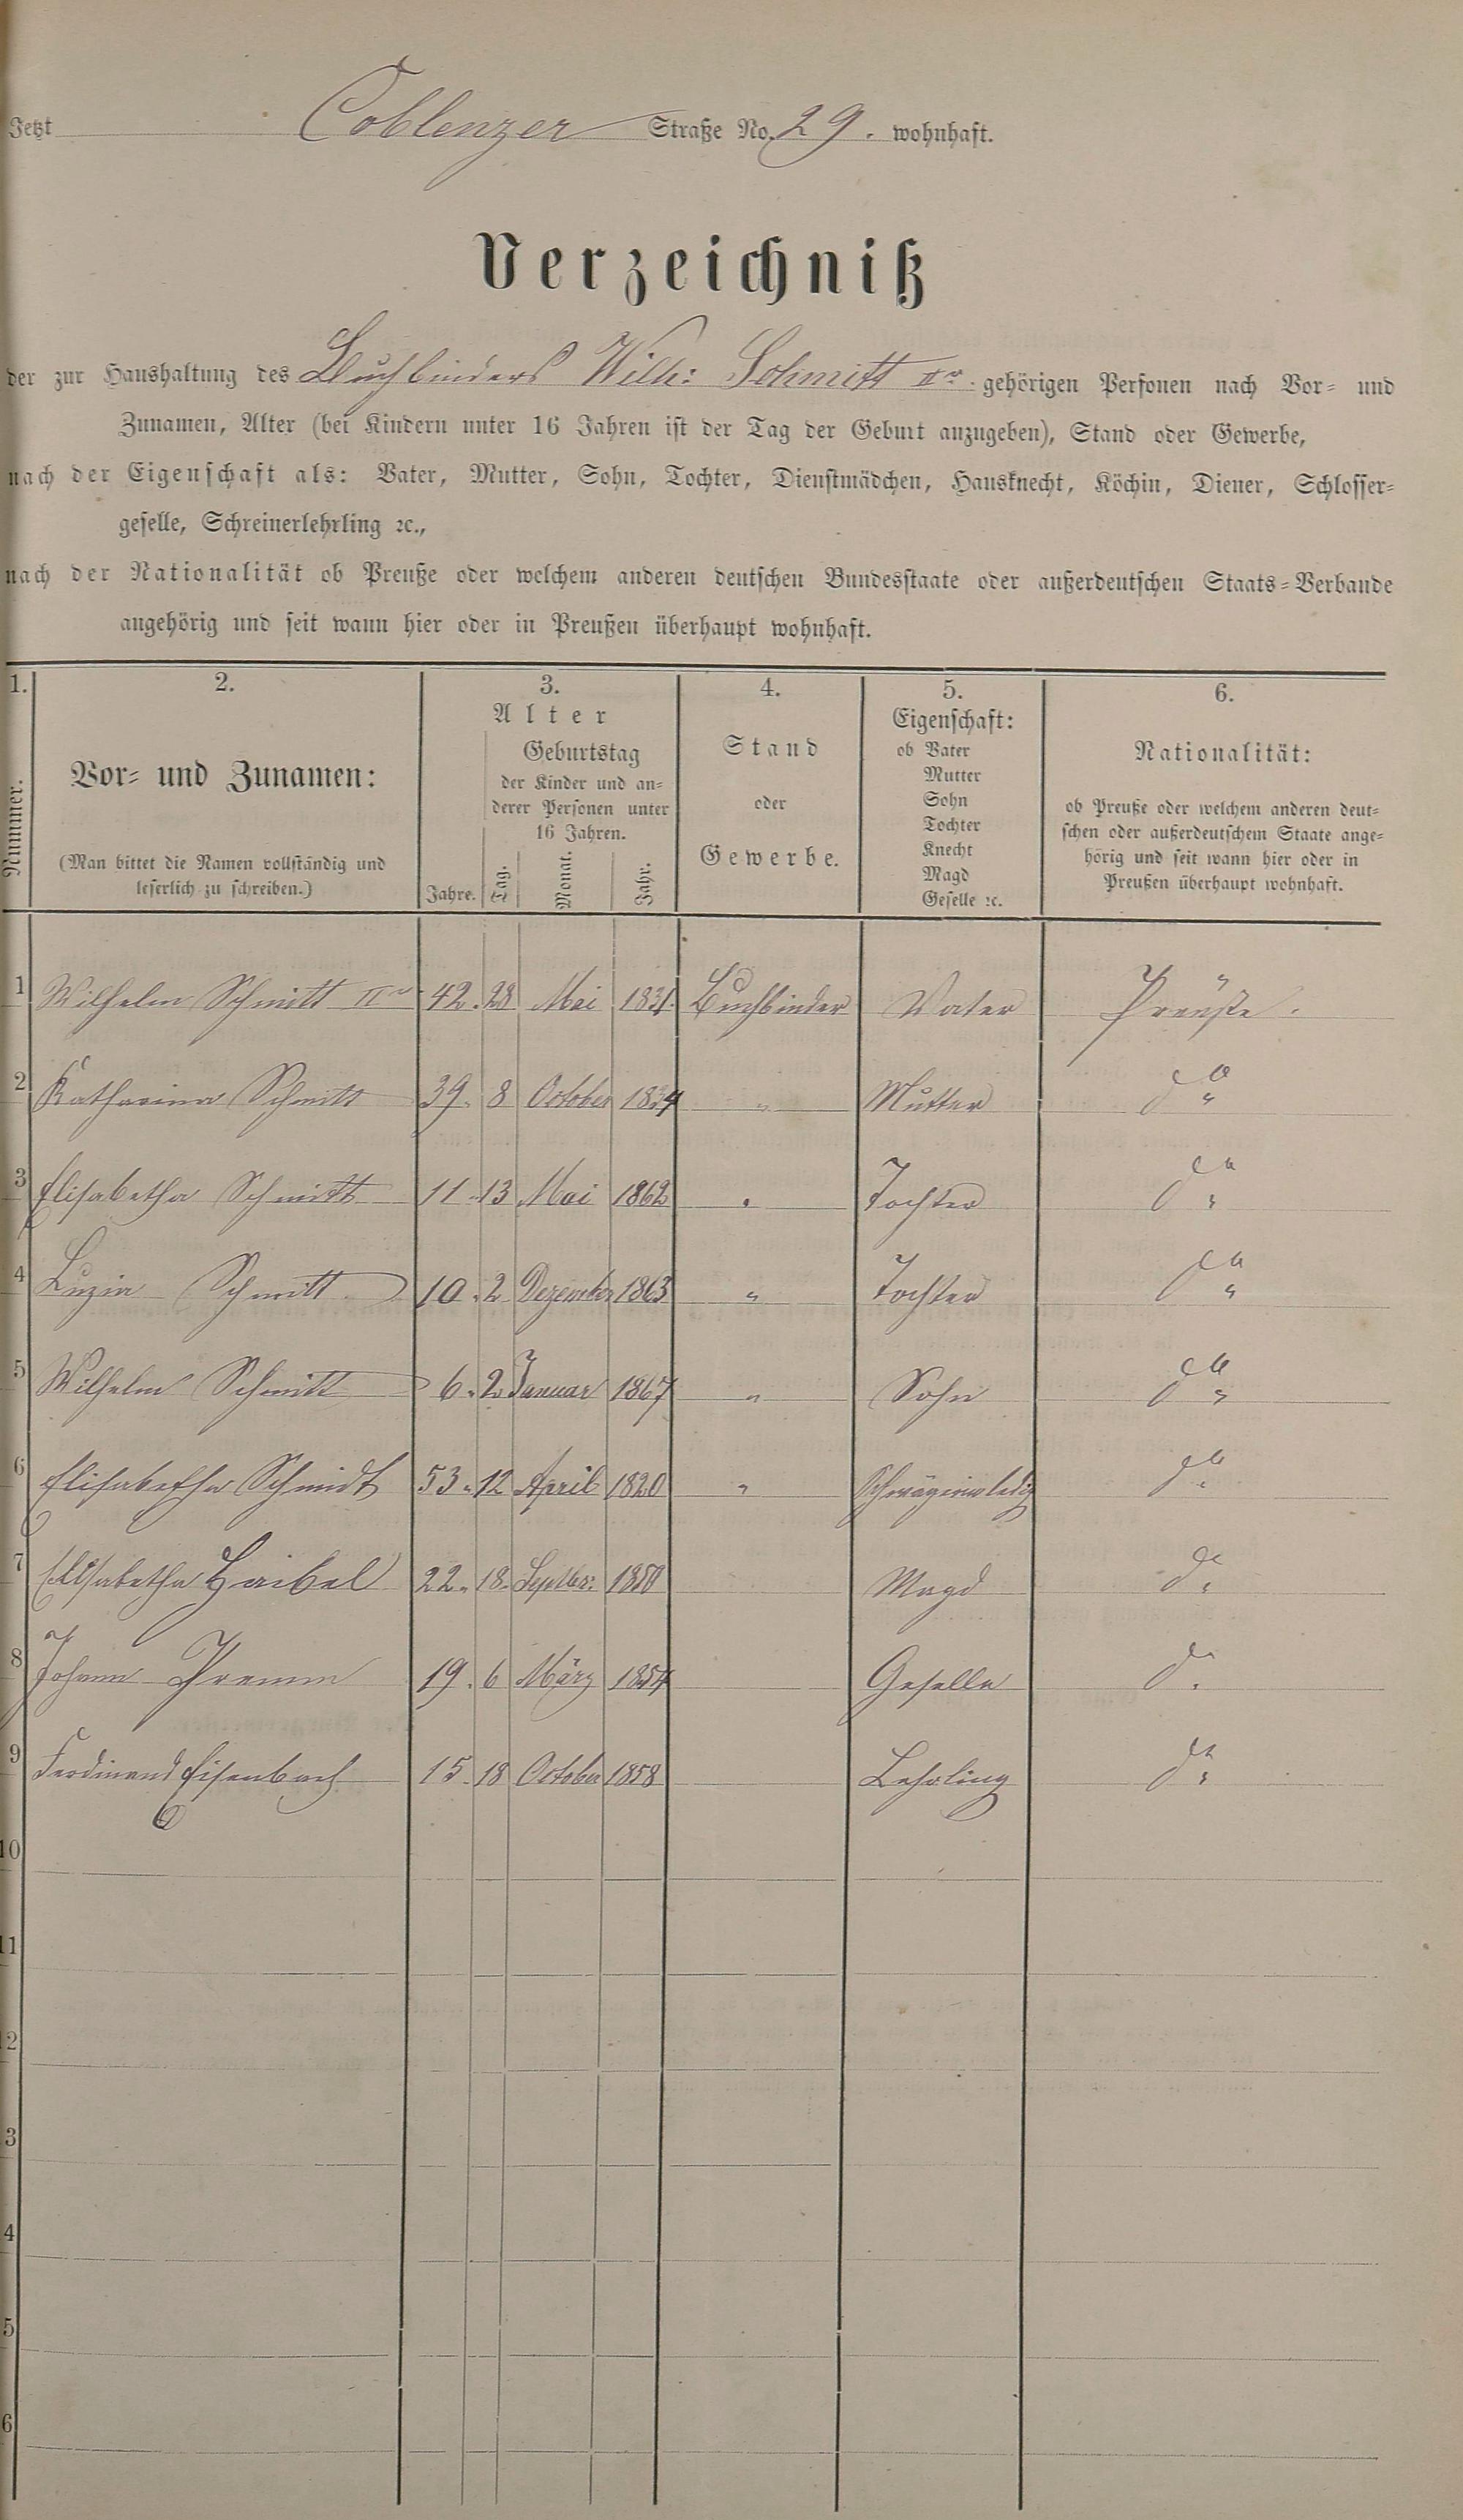 Jetzt Coblenzer Straße No. 29. wohnhaft.
Verzeichniß
der zur Haushaltung des Buchbinders Wilh: Schmitt IIr. gehörigen Personen nach Vor- und
Zunamen, Alter (bei Kindern unter 16 Jahren ist der Tag der Geburt anzugeben), Stand oder Gewerbe,
nach der Eigenschaft als: Vater, Mutter, Sohn, Tochter, Dienstmädchen, Hausknecht, Köchin, Diener, Schlosser-
geselle, Schreinerlehrling ꝛc.,
nach der Nationalität ob Preuße oder welchem anderen deutschen Bundesstaate oder außerdeutschen Staats-Verbande
angehörig und seit wann hier oder in Preußen überhaupt wohnhaft.
1.
Nummer.
2.
Vor- und Zunamen:
(Man bittet die Namen vollständig und
leserlich zu schreiben.)
3.
Alter
Geburtstag
der Kinder und an-
derer Personen unter
16 Jahren.
Jahre. Tag. Monat. Jahr.
4.
Stand
oder
Gewerbe.
5.
Eigenschaft:
ob Vater
Mutter
Sohn
Tochter
Knecht
Magd
Geselle ꝛc.
6.
Nationalität:
ob Preuße oder welchem anderen deut-
schen oder außerdeutschem Staate ange-
hörig und seit wann hier oder in
Preußen überhaupt wohnhaft.
1 Wilhelm Schmitt IIr 42. 28 Mai 1831. Buchbinder Vater Preuße.
2 Katharina Schmitt 39. 8 October 1834 " Mutter do "
3 Elisabetha Schmitt 11 13 Mai 1862 " Tochter do "
4 Luzia Schmitt 10. 2 Dezember 1863 " Tochter do "
5 Wilhelm Schmitt 6. 2 Januar 1867 " Sohn do "
6 Elisabetha Schmidt 53. 12 April 1820 " Schwägerin ledig do "
7 Elisabetha Haibel 22. 18. Septbr: 1850 Magd do "
8 Johann Premm 19. 6 März 1854 Geselle do "
9 Ferdinand Eisenbach 15. 18 October 1858 Lehrling do "
10
11
2
3
4
5
6